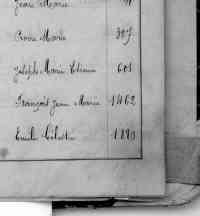 Jean Marie
Pierre Marie 307
Joseph Marie Etienne 601
François Jean Marie 1462
Emile Célestin 1890